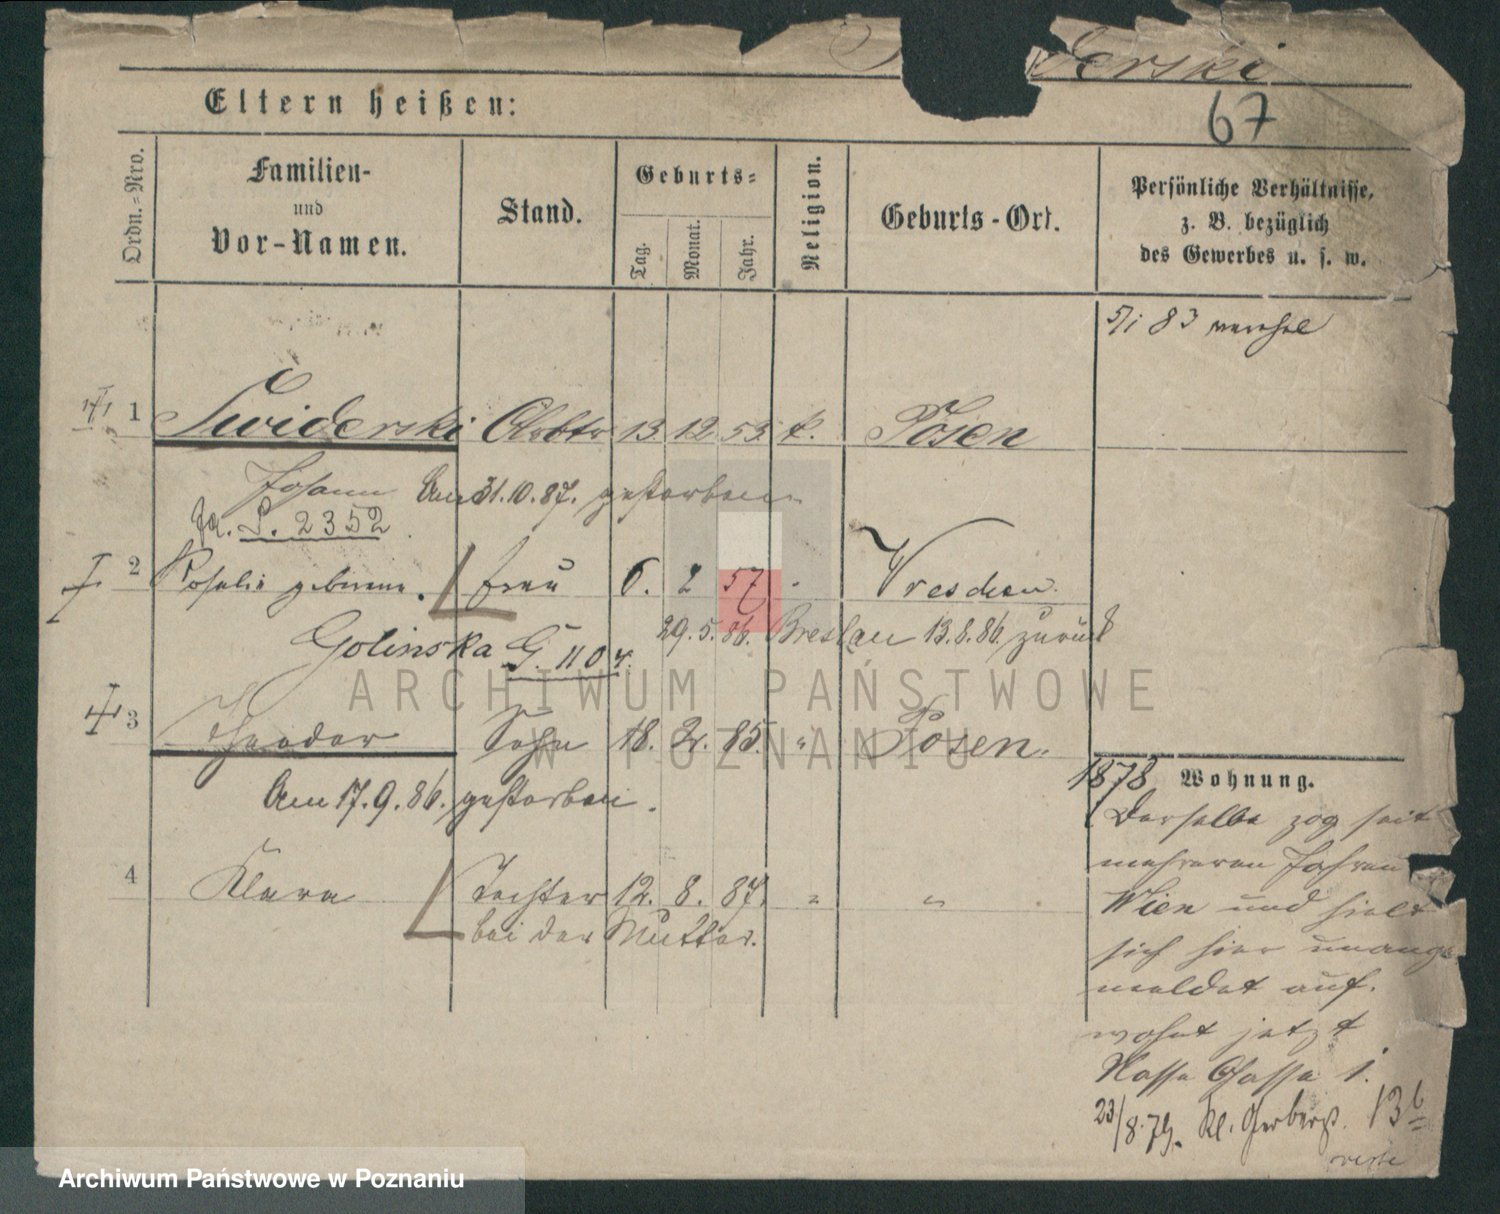 derski
67
Eltern heißen:
Ordn.=Nro.
Familien-
und
Vor-Namen.
Stand.
Geburts=
Tag.
Monat.
Jahr.
Religion.
Geburts-Ort.
Persönliche Verhältnisse,
z. B. bezüglich
des Gewerbes u. s. w.
5/1 83
1 Swiderski Arbtr 13. 12 53. k. Posen
Johann Am 31.10.87. gestorben
P. 2352
2 Rosalie geborene Frau 6. 2 57 Wreschen
Golinska G. 1104. 29.5.86. Breslau 13.8.86 zurück
3 Theodor Sohn 18. 2. 85. " Posen.
Am 17.9.86. gestorben.
4 Klara Tochter 12. 8. 87. " "
bei der Mutter.
1878 Wohnung.
Derselbe zog seit
mehreren Jahren
Wien und hielt
sich hier unange
meldet auf.
wohnt jetzt
Nasse Gasse 1.
23/8.79. Kl. Gerberst. 13b
ARCHIWUM PAŃSTWOWE
W POZNANIU
Archiwum Państwowe w Poznaniu